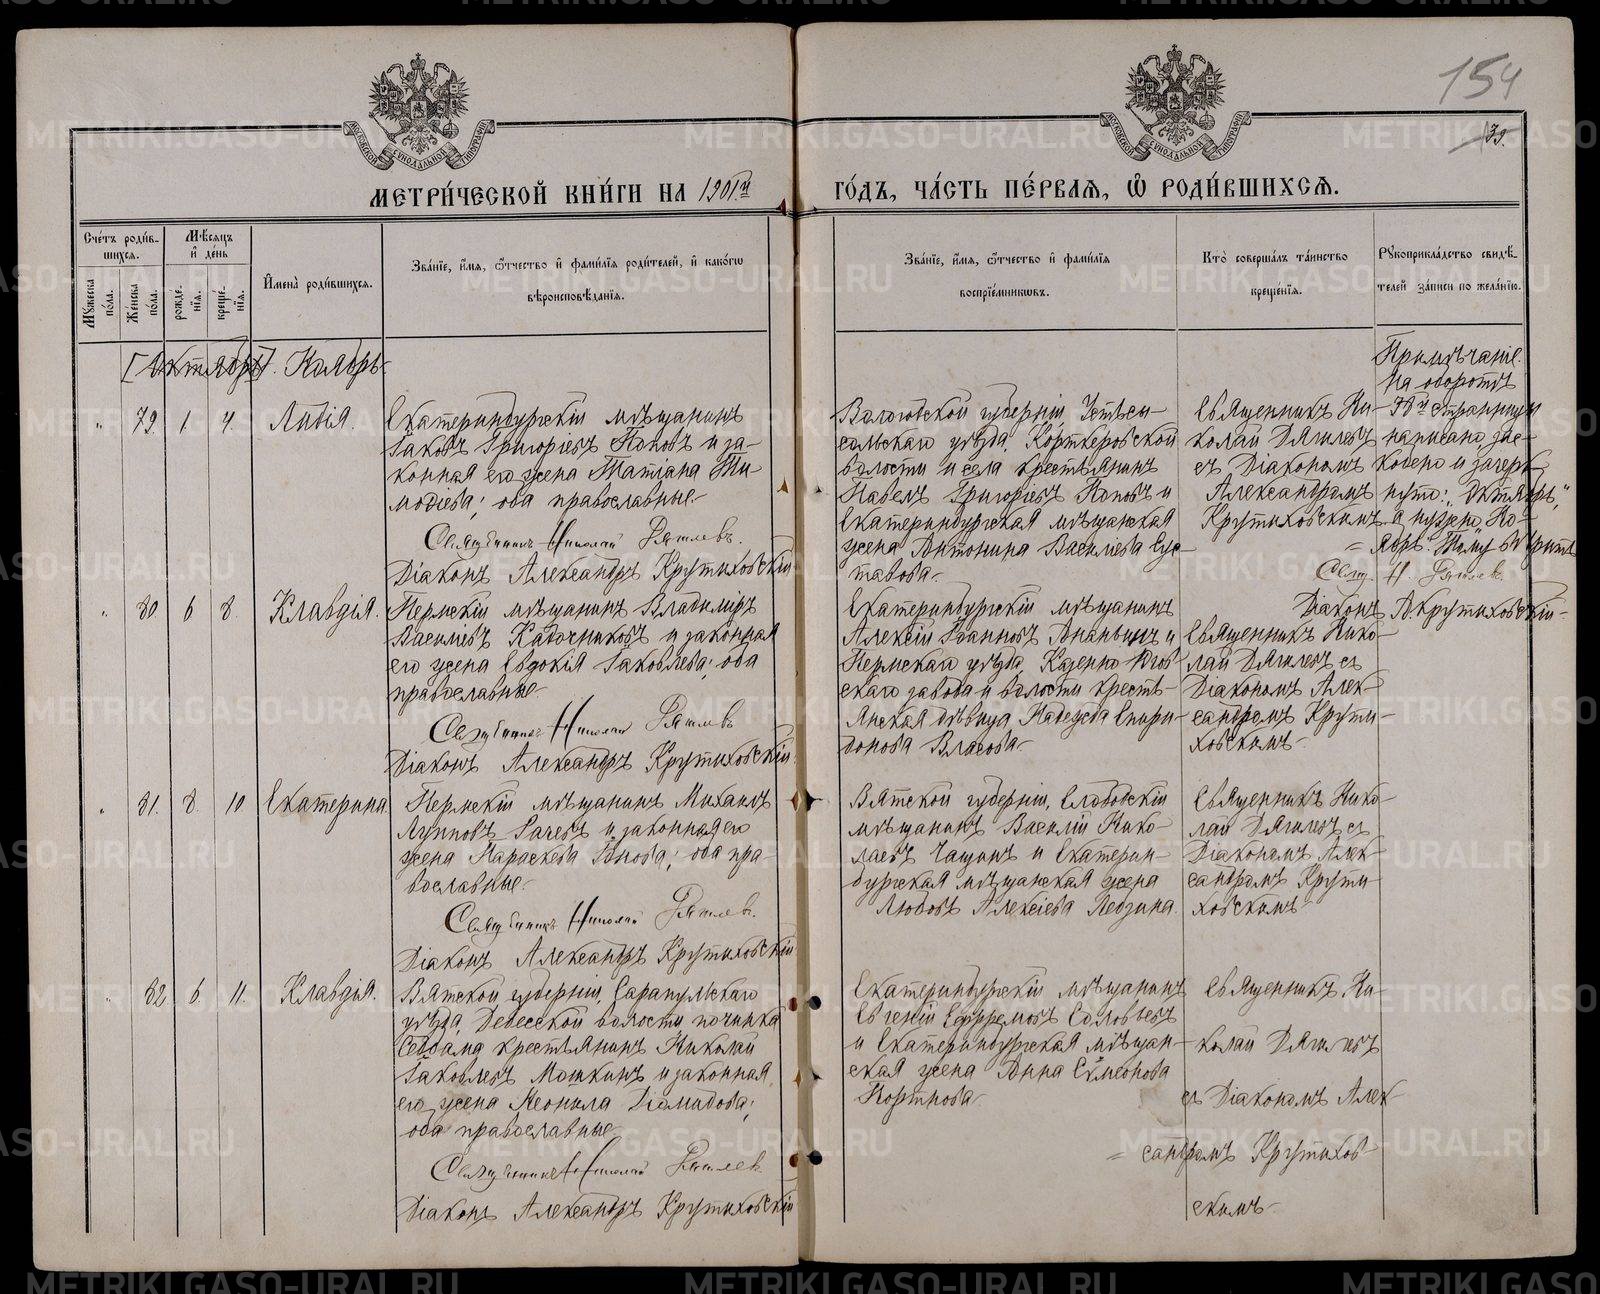 154
39.
МЕТРИ́ЧЕСКОЙ КНИ́ГИ НА 1901й ГО́ДЪ, ЧА́СТЬ ПЕ́РВАЯ, Ѡ РОДИ́ВШИХСЯ.
Сче́тъ роди́в-
шихся.
Мꙋ́жеска по́ла.
Же́нска по́ла.
Мѣ́сяцъ
и҆ де́нь
рожде́-
нїя.
креще́-
нїя.
И҆мена̀ роди́вшихся.
Зва́нїе, и҆́мя, ѻ҆́тчество и҆ фами́лїя роди́телей, и҆ како́гѡ
вѣроисповѣ́данїя.
Зва́нїе, и҆́мя, ѻ҆́тчество и҆ фами́лїя
воспрїе́мниковъ.
Кто̀ соверша́лъ та́инство
креще́нїя.
Рꙋкоприкла́дство свидѣ́-
телей за́писи по жела́нїю.
[Октябрь]. Ноябрь
79. 1 4. Лидія.
Екатеринбургскій мѣщанинъ
Іаковъ Григоріевъ Поповъ и за-
конная его жена Татіана Ти-
моѳіева; оба православные
Священникъ Николай Дягилевъ.
Діаконъ Александръ Крутиховскій
Вологодской губерніи, Устьсы-
сольскаго уѣзда, Корткеровской
волости и села крестьянинъ
Павелъ Григоріевъ Поповъ и
Екатеринбургская мѣщанская
жена Антонина Василіева Сус-
тавова
Священникъ Ни-
колай Дягилевъ
съ Діакономъ
Александромъ
Крутиховскимъ
Примѣчаніе.
На оборотѣ
38й страницы
написано, зас-
кобено и зачерк-
нуто: „Октябрь,"
а нужно „Но-
ябрь".
Свящ. Н. Дягилев.
Діаконъ А. Крутиховскій
80. 6 8. Клавдія.
Пермскій мѣщанинъ Владиміръ
Василіевъ Кадочниковъ и законная
его жена Евдокія Іаковлева; оба
православные
Священникъ Николай Дягилевъ
Діаконъ Александръ Крутиховскій
Екатеринбургскій мѣщанинъ
Алексій Іоанновъ Ананьинъ и
Пермскаго уѣзда, Казенно Югов-
скаго завода и волости кресть-
янская дѣвица Надежда Спири-
донова Власова
Священникъ Нико-
лай Дягилевъ съ
Діакономъ Алек-
сандромъ Крути-
ховскимъ
81. 8. 10 Екатерина.
Пермскій мѣщанинъ Михаилъ
Лупповъ Рачевъ и законная его
жена Параскева Іонова; оба пра-
вославные
Священникъ Николай Дягилев.
Діаконъ Александръ Крутиховскій
Вятской губерніи, Слободскій
мѣщанинъ Василій Нико-
лаевъ Чащинъ и Екатерин-
бургская мѣщанская жена
Любовь Алексіева Лебзина.
Священникъ Нико-
лай Дягилевъ съ
Діакономъ Алек-
сандромъ Крути-
ховскимъ
82 6. 11. Клавдія.
Вятской губерніи, Сарапульскаго
уѣзда, Дебесской волости починка
крестьянинъ Николай
Іаковлевъ Мошкинъ и законная
его жена Неонила Діомидова;
оба православные
Священникъ Николай Дягилев
Діаконъ Александръ Крутиховскій
Екатеринбургскій мѣщанинъ
Евгеній Ефремовъ Соловьевъ
и Екатеринбургская мѣщан-
ская жена Анна Симеонова
Портнова
Священникъ Ни-
колай Дягилевъ
съ Діакономъ Алек-
сандромъ Крутихов-
скимъ